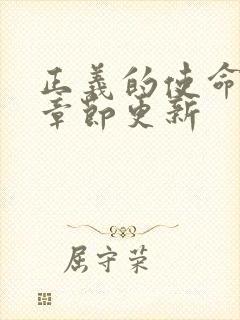 正義的使命
章節更新
屈守荣